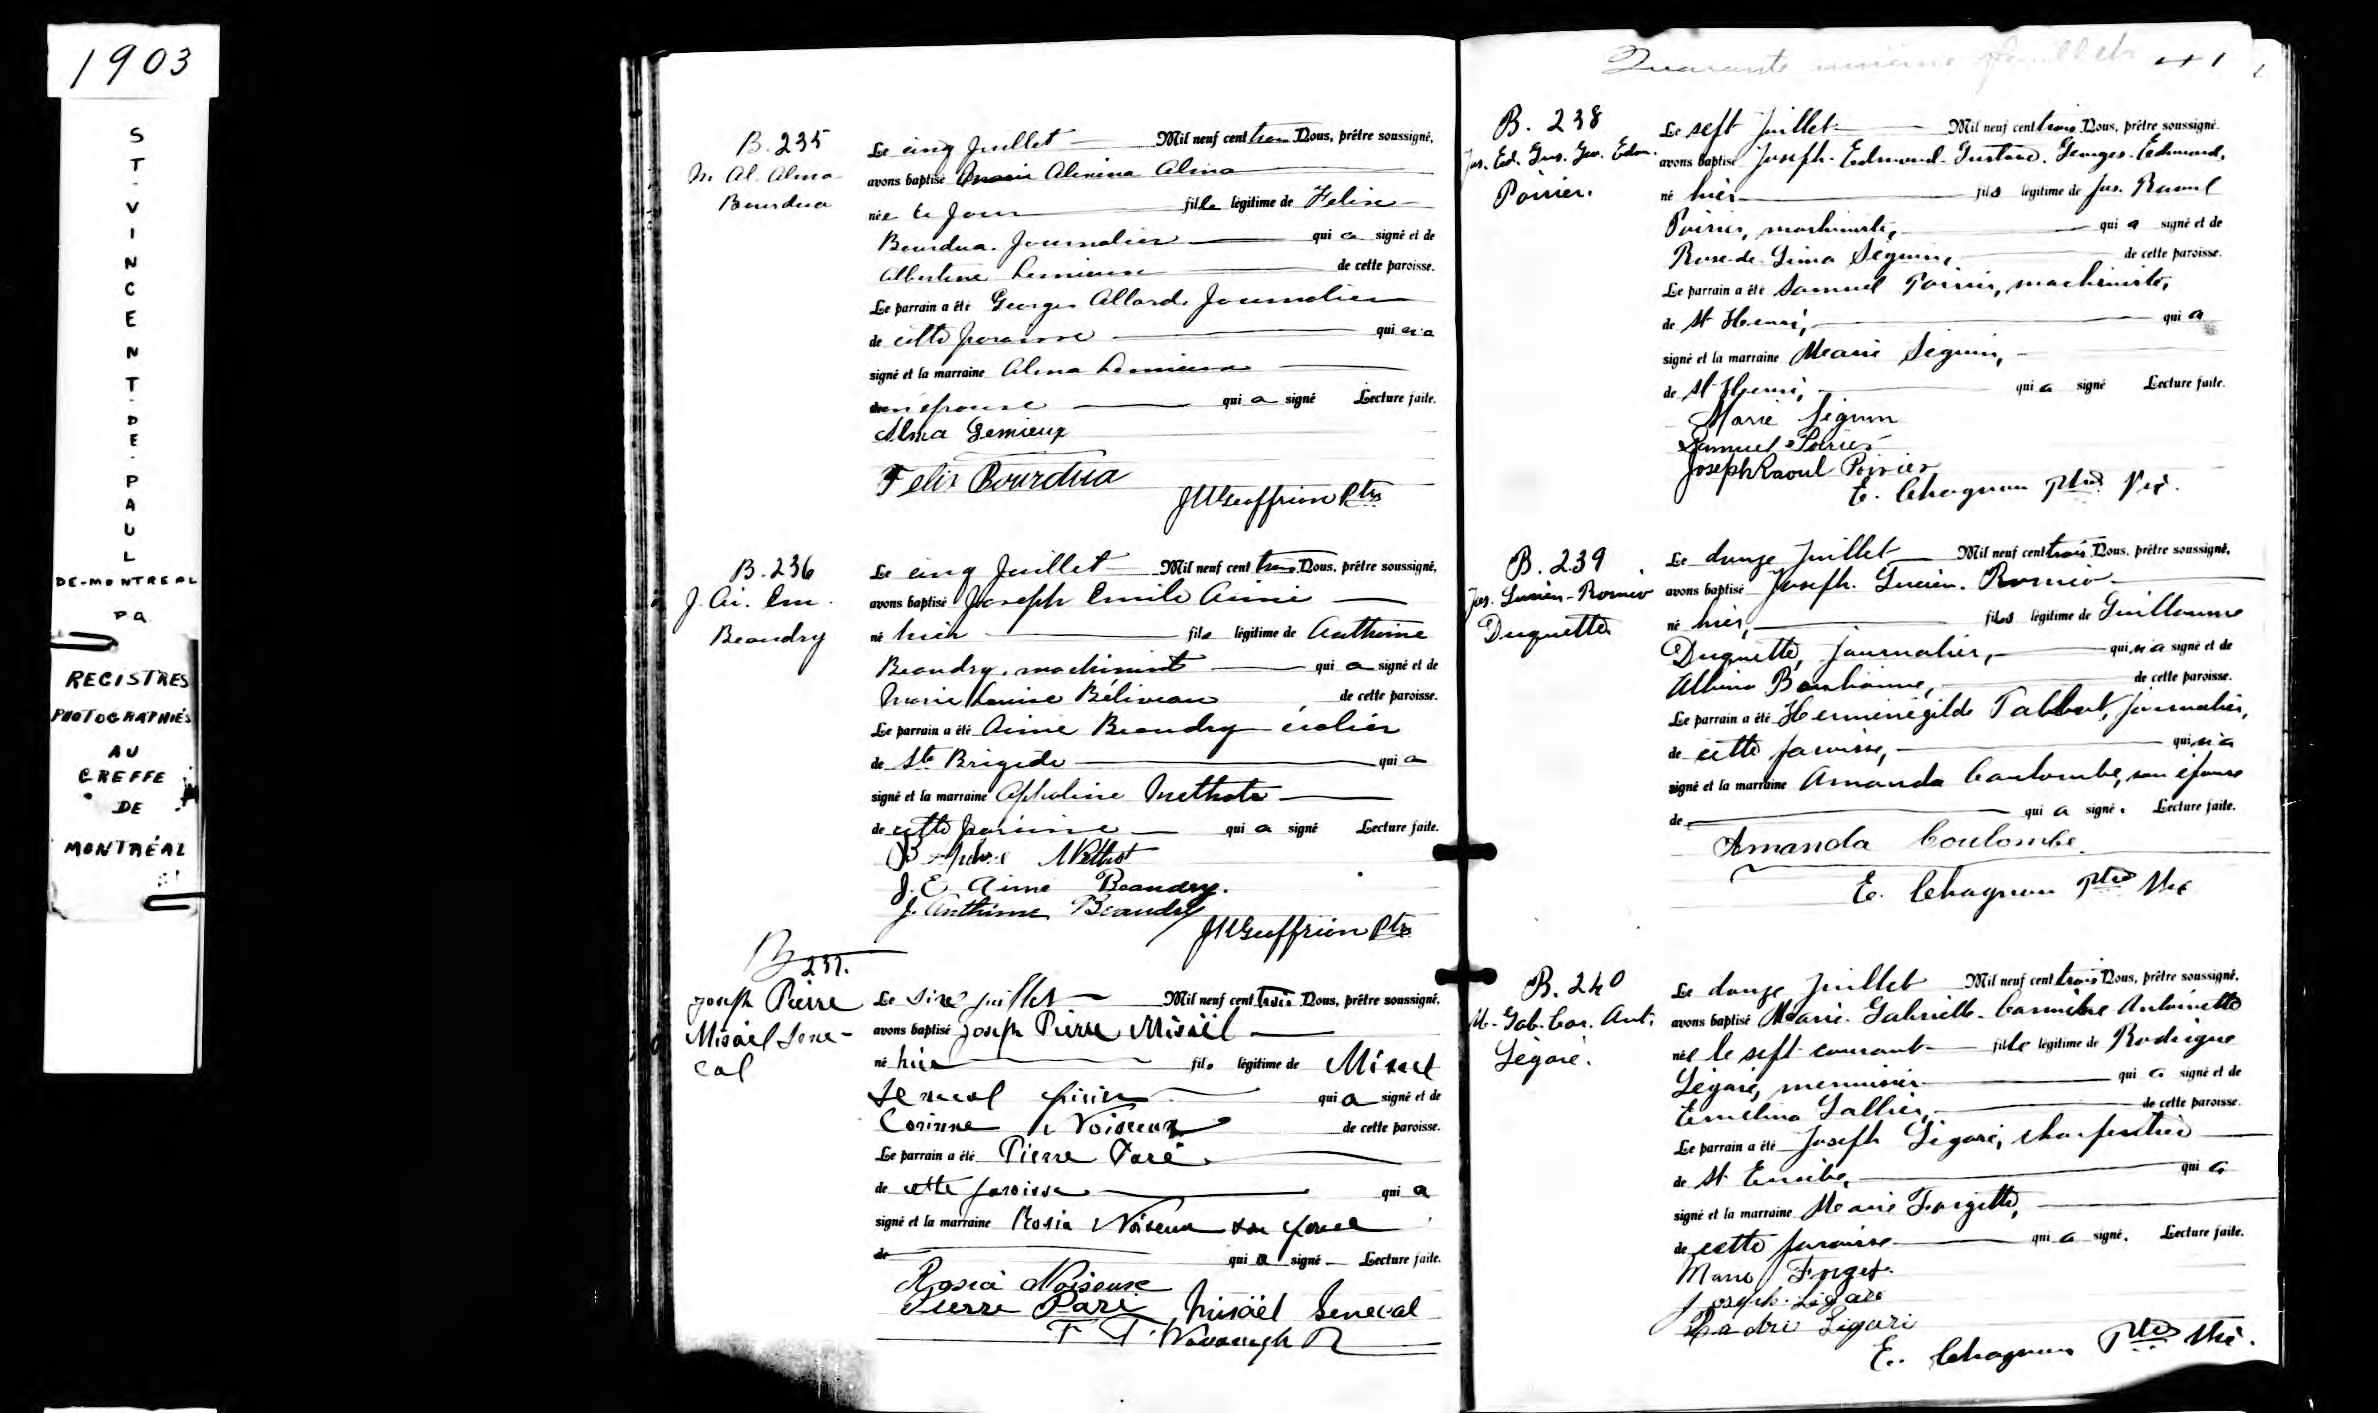 1903
ST-VINCENT-DE-PAUL
DE-MONTREAL
PQ
REGISTRES
PHOTOGRAPHIÉS
AU
GREFFE
DE
MONTRÉAL
B. 235
M. Al. Alma
Bourdua
Le cinq Juillet Mil neuf cent trois Nous, prêtre soussigné,
avons baptisé Marie Alma
née ce jour fille légitime de Felix
Bourdua. Journalier qui a signé et de
Albertine Lemieux de cette paroisse.
Le parrain a été Georges Allard. Journalier
de cette paroisse qui n'a
signé et la marraine Alma Lemieux
son épouse qui a signé Lecture faite.
Alma Lemieux
Felix Bourdua
Geoffrion Ptre
B. 236
J. Ai. Em.
Beaudry
Le cinq Juillet Mil neuf cent trois Nous, prêtre soussigné,
avons baptisé Joseph Emile Aimé
né hier fils légitime de Anthime
Beaudry, machiniste qui a signé et de
Marie Louise Béliveau de cette paroisse.
Le parrain a été Aimé Beaudry écolier
de Ste Brigide qui a
signé et la marraine Methote
de cette paroisse qui a signé Lecture faite.
Methot
J. E. Aimé Beaudry.
J. Anthime Beaudry
Geoffrion Ptre
B 237.
Joseph Pierre
Misaël Sene-
cal
Le six juillet Mil neuf cent trois Nous, prêtre soussigné,
avons baptisé Joseph Pierre Misaël
né hier fils légitime de Misael
Senecal qui a signé et de
Corinne Noiseux de cette paroisse.
Le parrain a été Pierre Paré
de cette paroisse qui a
signé et la marraine Rosia Noiseux son épouse
de qui a signé Lecture faite.
Rosia Noiseux
Pierre Paré Misaël Senecal
Quarante unième feuillet 41
B. 238
Jos. Ed. Gus. Geo. Edm.
Poirier.
Le sept Juillet Mil neuf cent trois Nous, prêtre soussigné.
avons baptisé Joseph-Edmond-Gustave-Georges-Edmond,
né hier fils légitime de Jos. Raoul
Poirier, machiniste, qui a signé et de
Rose-de-Lima Séguin, de cette paroisse.
Le parrain a été Samuel Poirier, machiniste,
de St Henri, qui a
signé et la marraine Marie Séguin,
de St Henri, qui a signé Lecture faite.
Marie Séguin
Samuel Poirier
Joseph Raoul Poirier
E. Chagnon Ptre Vic.
B. 239
Jos. Lucien-Roméo
Duquette
Le douze Juillet Mil neuf cent trois Nous, prêtre soussigné,
avons baptisé Joseph-Lucien-Roméo
né hier, fils légitime de Guillaume
Duquette, journalier, qui n'a signé et de
Albina de cette paroisse.
Le parrain a été Herménégilde Talbot, journalier,
de cette paroisse, qui n'a
signé et la marraine Amanda Coulombe, son épouse
de qui a signé. Lecture faite.
Amanda Coulombe
E. Chagnon Ptre Vic
B. 240
M-Gab. Car. Ant.
Légaré.
Le douze Juillet Mil neuf cent trois Nous, prêtre soussigné,
avons baptisé Marie-Gabrielle-Carmélie Antoinette
née le sept courant fille légitime de Rodrigue
Légaré, menuisier qui a signé et de
Emelina Gallier, de cette paroisse.
Le parrain a été Joseph Légaré, charpentier
de St Eusèbe, qui a
signé et la marraine Marie Forgette,
de cette paroisse qui a signé. Lecture faite.
Marie Forget
Joseph Légaré
Légaré
E. Chagnon Ptre Vic.